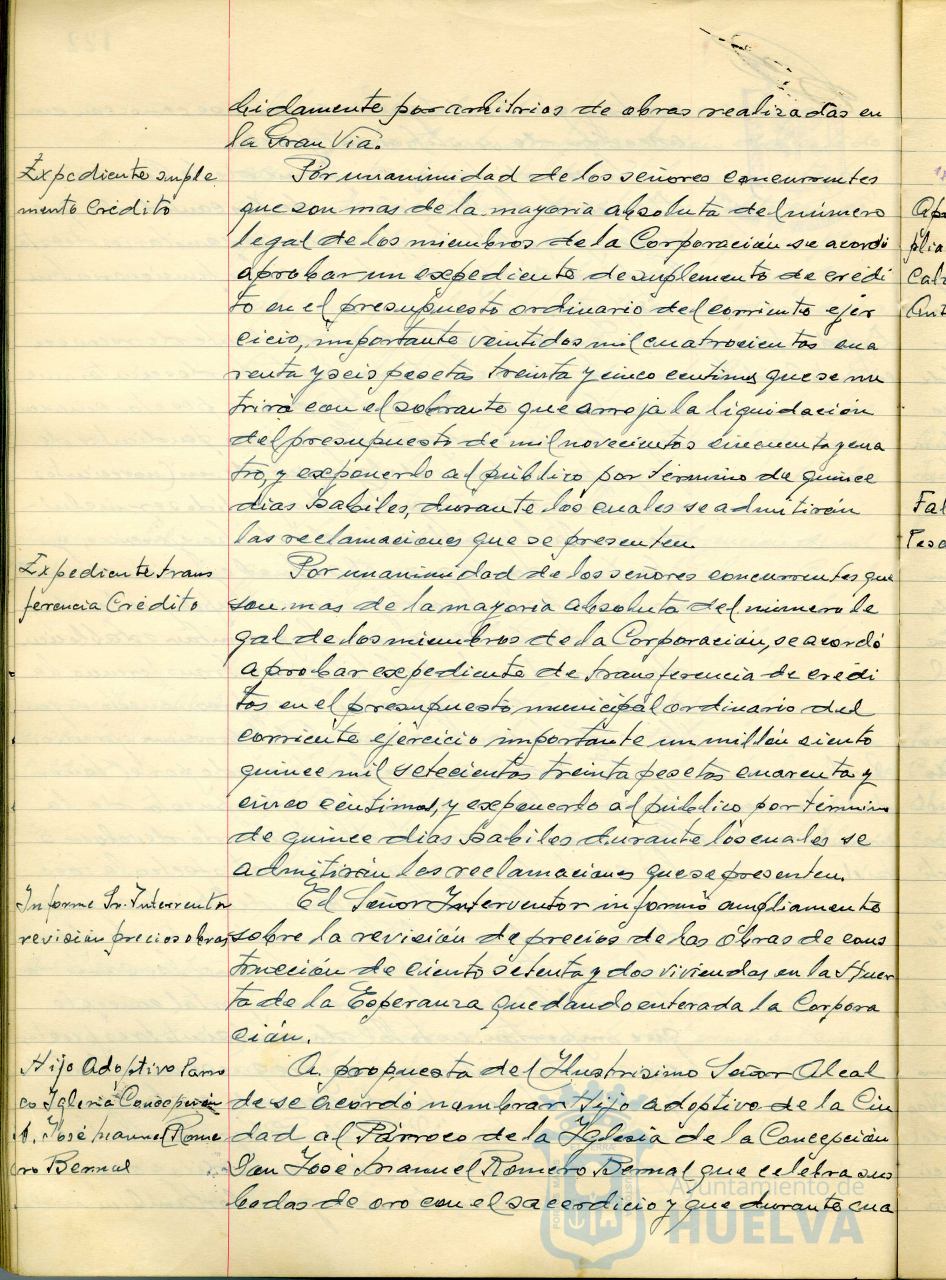 bidamente por arbitrios de obras realizadas en
la Gran Vía.
Expediente suple
mento Crédito
Por unanimidad de los señores concurrentes
que son mas de la mayoría absoluta del número
legal de los miembros de la Corporación se acordó
aprobar un expediente de suplemento de crédi
to en el presupuesto ordinario del corriente ejer
cicio, importante veintidos mil cuatrocientas cua
renta y seis pesetas treinta y cinco centimos que se nu
trirá con el sobrante que arroja la liquidación
del presupuesto de mil novecientos cincuenta y cua
tro, y exponerlo al público por término de quince
dias habiles, durante los cuales se admitirán
las reclamaciones que se presenten.
Expediente trans
ferencia Crédito
Por unanimidad de los señores concurrentes que
son mas de la mayoría absoluta del número le
gal de los miembros de la Corporación, se acordó
aprobar expediente de transferencia de crédi
tos en el presupuesto municipal ordinario del
corriente ejercicio importante un millón siento
quince mil setecientas treinta pesetas cuarenta y
cinco centimos, y exponerlo al público por término
de quince dias habiles durante los cuales se
admitirán las reclamaciones que se presenten.
Informe Sr. Interventor
revisión precios obras
El Señor Interventor informó ampliamente
sobre la revisión de precios de las obras de cons
trucción de ciento setenta y dos viviendas en la Huer
ta de la Esperanza quedando enterada la Corpora
ción.
Hijo Adoptivo Párro
co Iglesia Concepción
D. José Manuel Rome
ro Bernal
A propuesta del Ilustrisimo Señor Alcal
de se acordó nombrar Hijo adoptivo de la Ciu
dad al Párroco de la Iglesia de la Concepción
Don José Manuel Romero Bernal que celebra sus
bodas de oro con el sacerdicio y que durante cua
Ayuntamiento de
HUELVA